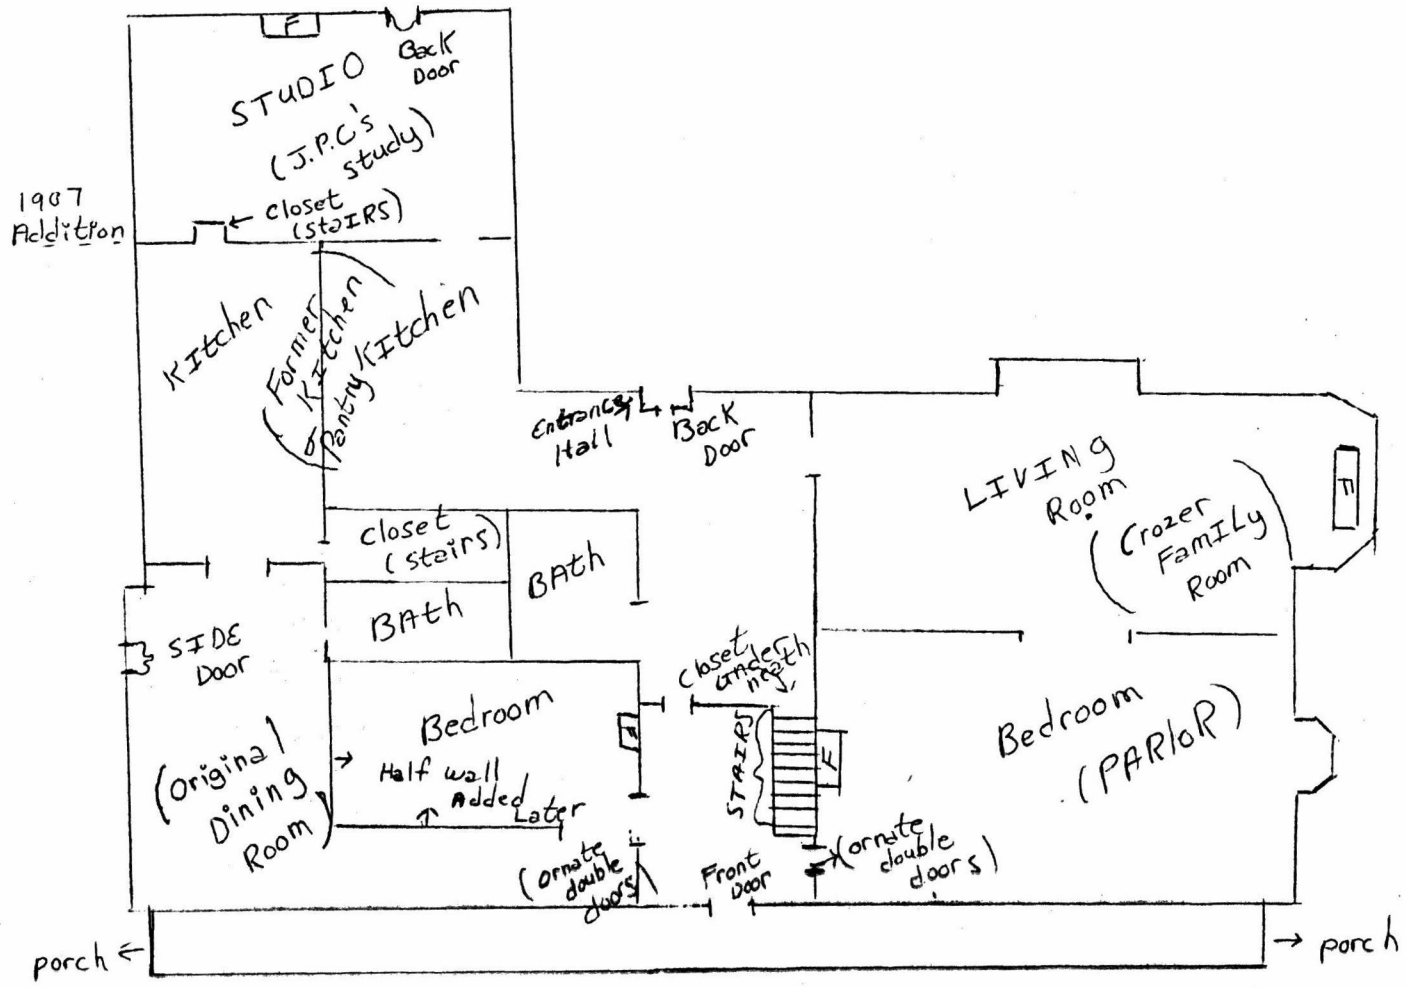 F
Back
Door
STUDIO
(J.P.C's
study)
1907
Addition
← closet
(stairs)
Kitchen
(Former
Kitchen
& Pantry
Kitchen
Entrance
Hall
Back
Door
LIVING
Room
(Crozer
Family
Room
F
closet
(stairs)
BATH
BATH
SIDE
Door
closet
under
neath
Bedroom
F
Half wall
Added
Later
(Original
Dining
Room)
STAIRS
F
Bedroom
(PARLOR)
(ornate
double
doors)
Front
Door
(ornate
double
doors)
porch ←
→ porch